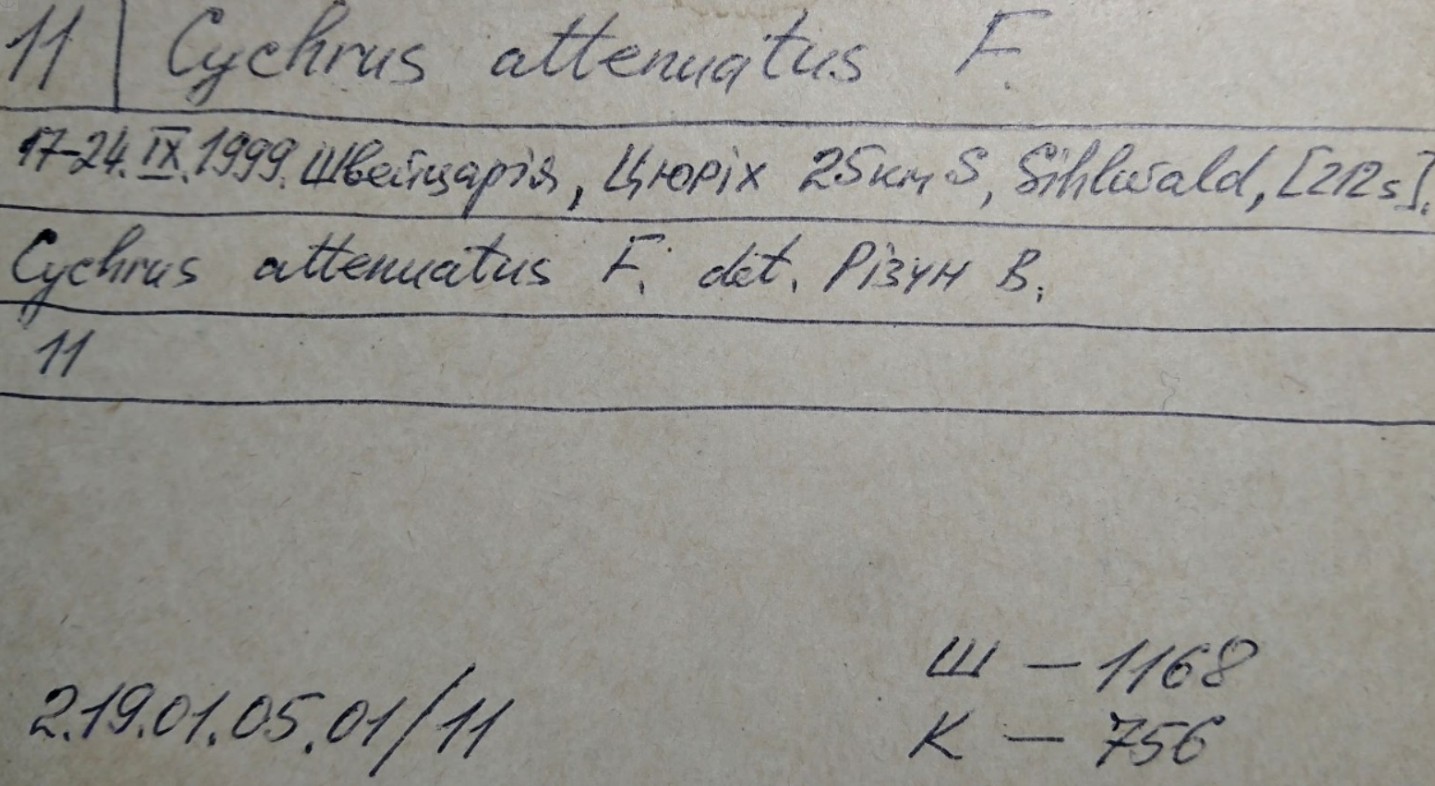 11 | Cychrus attenuatus F.
17-24.IX.1999. Швейцарія, Цюріх 25км S, Sihlwald, [212s].
Cychrus attenuatus F. det. Різун В.
11
Ш — 1168
2.19.01.05.01/11
К — 756